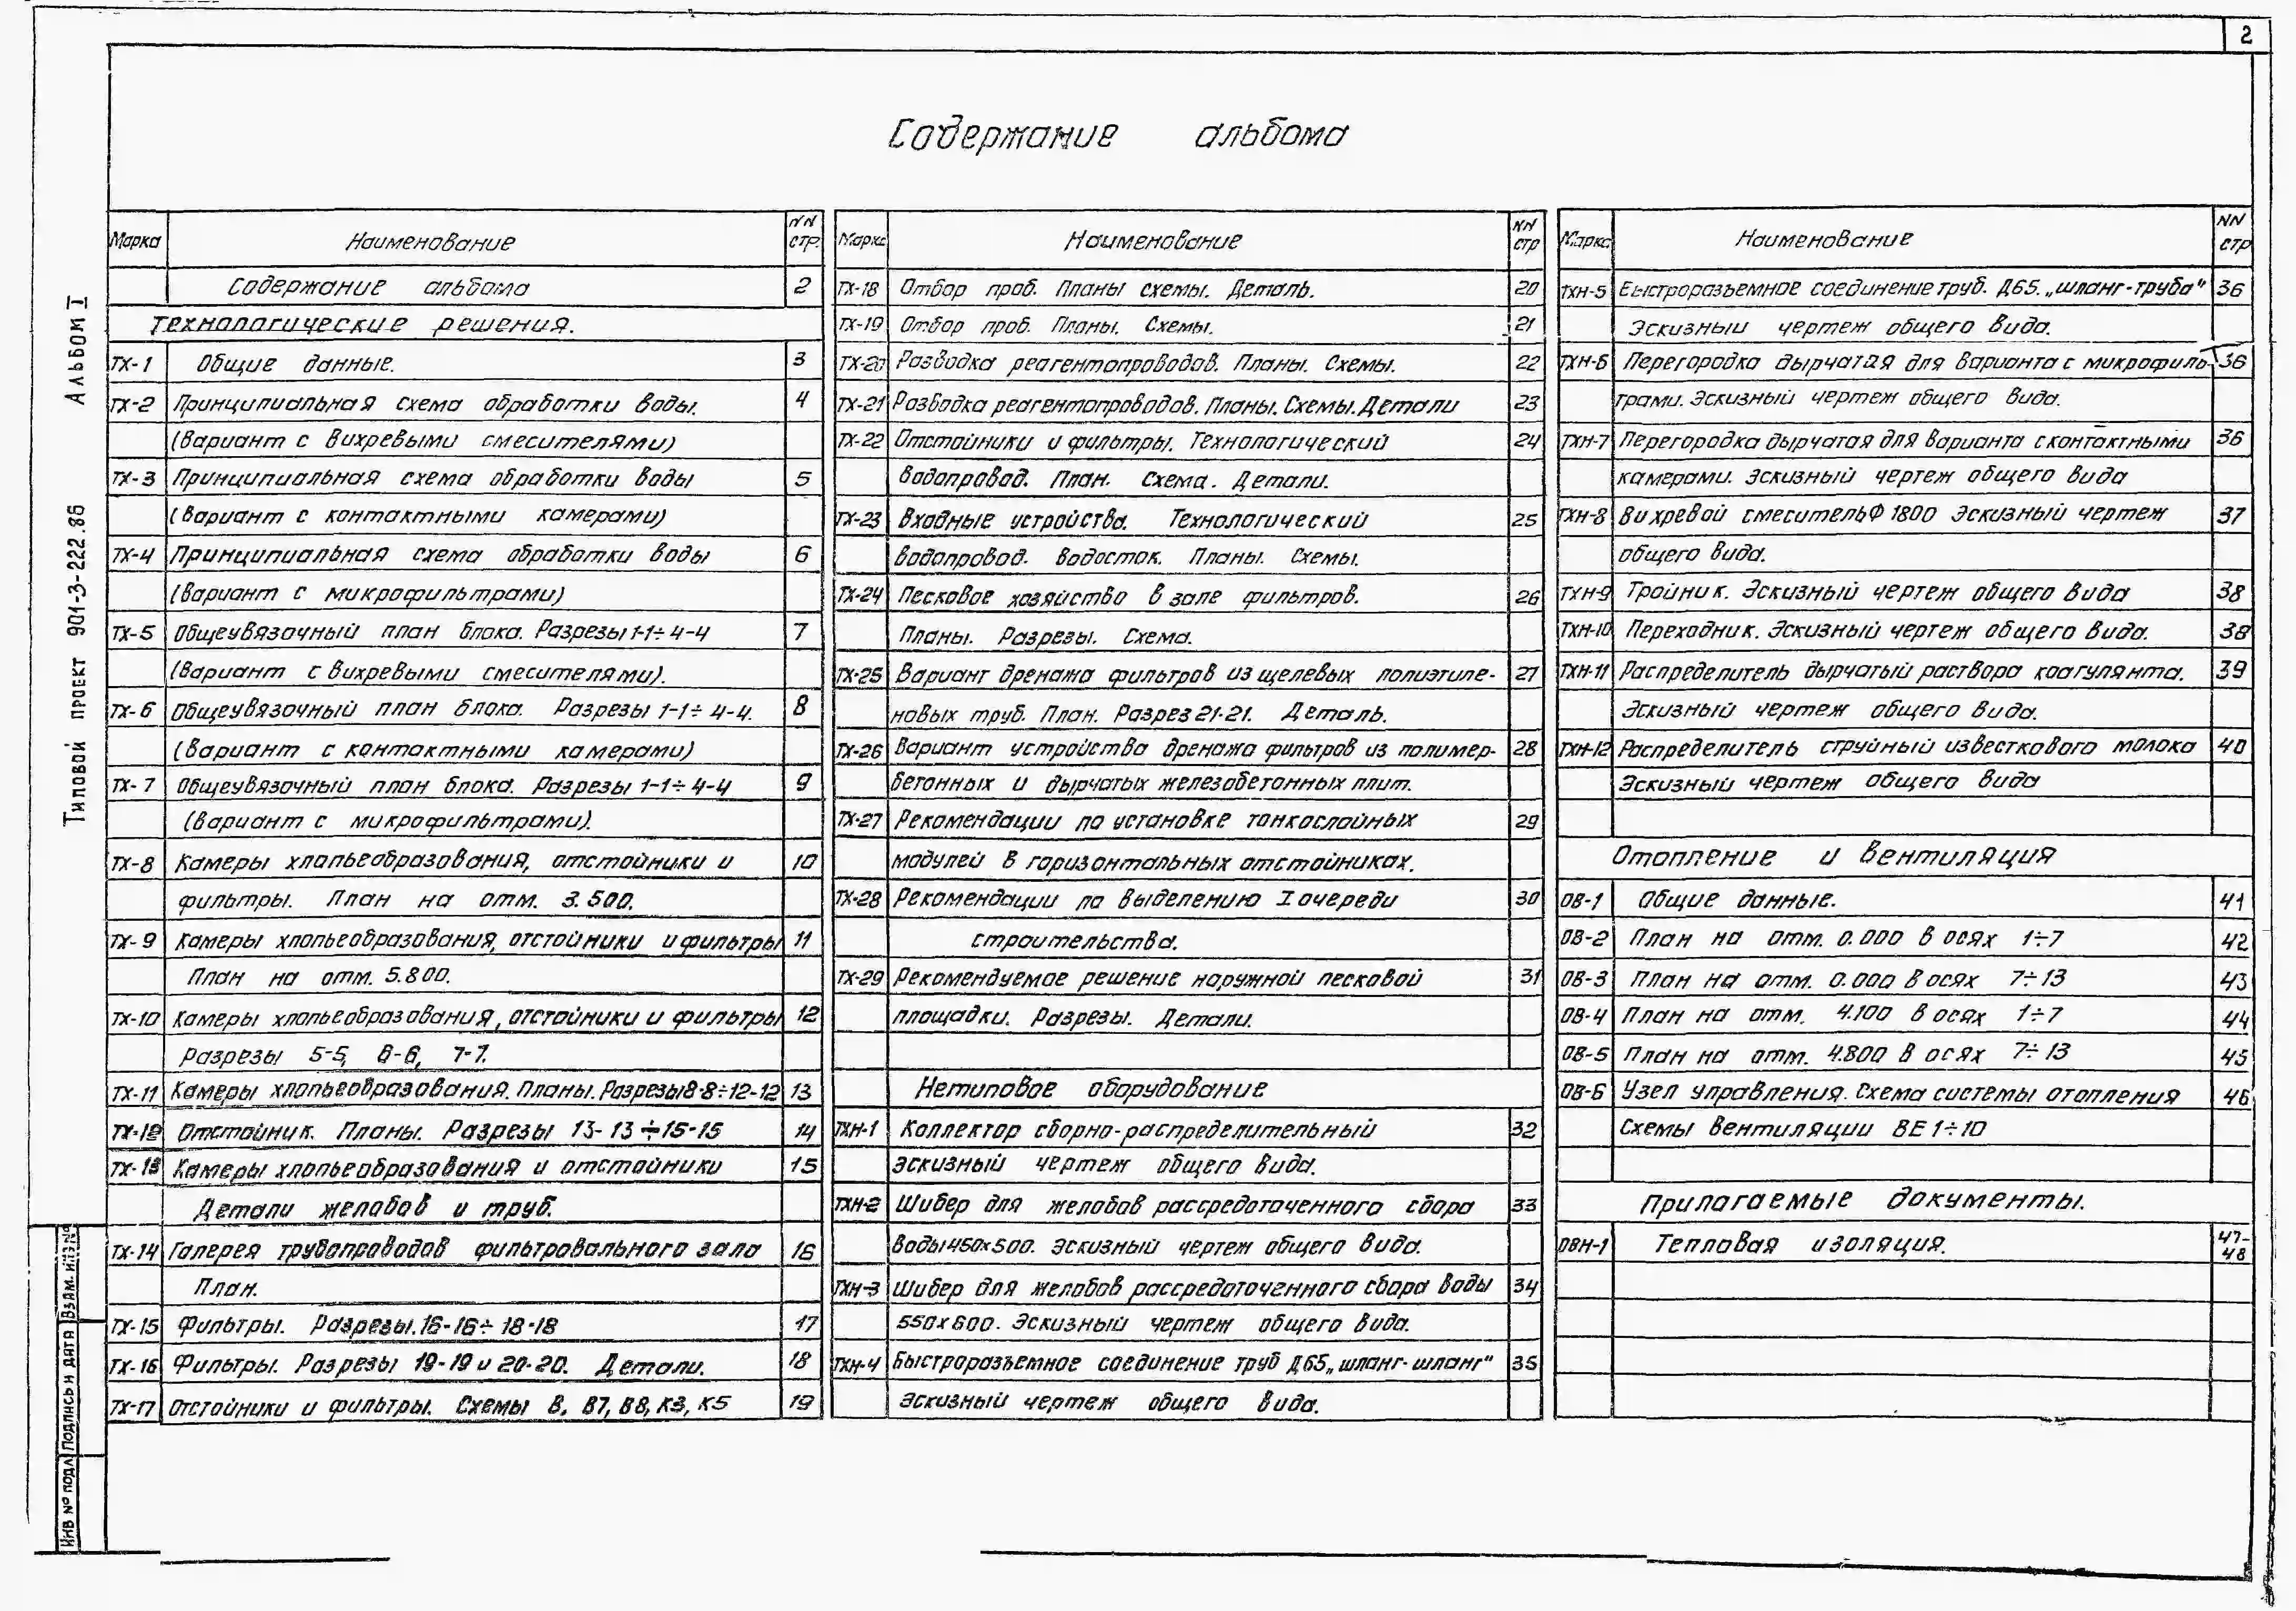 2
Содержание альбома
Марка Наименование NN стр.
Содержание альбома 2
Технологические решения.
ТХ-1 Общие данные. 3
ТХ-2 Принципиальная схема обработки воды. 4
(Вариант с вихревыми смесителями)
ТХ-3 Принципиальная схема обработки воды 5
(Вариант с контактными камерами)
ТХ-4 Принципиальная схема обработки воды 6
(Вариант с микрофильтрами)
ТХ-5 Общеувязочный план блока. Разрезы 1-1÷4-4 7
(Вариант с вихревыми смесителями).
ТХ-6 Общеувязочный план блока. Разрезы 1-1÷4-4. 8
(Вариант с контактными камерами)
ТХ-7 Общеувязочный план блока. Разрезы 1-1÷4-4 9
(Вариант с микрофильтрами).
ТХ-8 Камеры хлопьеобразования, отстойники и 10
фильтры. План на отм. 3.500.
ТХ-9 Камеры хлопьеобразования, отстойники и фильтры 11
План на отм. 5.800.
ТХ-10 Камеры хлопьеобразования, отстойники и фильтры 12
Разрезы 5-5, 6-6, 7-7.
ТХ-11 Камеры хлопьеобразования. Планы. Разрезы 8-8÷12-12 13
ТХ-12 Отстойник. Планы. Разрезы 13-13÷15-15 14
ТХ-13 Камеры хлопьеобразования и отстойники 15
Детали желобов и труб.
ТХ-14 Галерея трубопроводов фильтровального зала 16
План.
ТХ-15 Фильтры. Разрезы. 16-16÷18-18 17
ТХ-16 Фильтры. Разрезы 19-19 и 20-20. Детали. 18
ТХ-17 Отстойники и фильтры. Схемы В, В7, В8, К3, К5 19
Марка Наименование NN стр
ТХ-18 Отбор проб. Планы схемы. Деталь. 20
ТХ-19 Отбор проб. Планы. Схемы. 21
ТХ-20 Разводка реагентопроводов. Планы. Схемы. 22
ТХ-21 Разводка реагентопроводов. Планы. Схемы. Детали 23
ТХ-22 Отстойники и фильтры. Технологический 24
водопровод. План. Схема. Детали.
ТХ-23 Входные устройства. Технологический 25
водопровод. Водосток. Планы. Схемы.
ТХ-24 Песковое хозяйство в зале фильтров. 26
Планы. Разрезы. Схема.
ТХ-25 Вариант дренажа фильтров из щелевых полиэтиле- 27
новых труб. План. Разрез 21-21. Деталь.
ТХ-26 Вариант устройства дренажа фильтров из полимер- 28
бетонных и дырчатых железобетонных плит.
ТХ-27 Рекомендации по установке тонкослойных 29
модулей в горизонтальных отстойниках.
ТХ-28 Рекомендации по выделению I очереди 30
строительства.
ТХ-29 Рекомендуемое решение наружной песковой 31
площадки. Разрезы. Детали.
Нетиповое оборудование
ТХН-1 Коллектор сборно-распределительный 32
Эскизный чертеж общего вида.
ТХН-2 Шибер для желобов рассредоточенного сбора 33
воды 450х500. Эскизный чертеж общего вида.
ТХН-3 Шибер для желобов рассредоточенного сбора воды 34
550х600. Эскизный чертеж общего вида.
ТХН-4 Быстроразъемное соединение труб Д65 „шланг-шланг" 35
Эскизный чертеж общего вида.
Марка Наименование NN стр
ТХН-5 Быстроразъемное соединение труб. Д65. „шланг-труба" 36
Эскизный чертеж общего вида.
ТХН-6 Перегородка дырчатая для варианта с микрофиль- 36
трами. Эскизный чертеж общего вида.
ТХН-7 Перегородка дырчатая для варианта с контактными 36
камерами. Эскизный чертеж общего вида
ТХН-8 Вихревой смеситель Ф 1800 Эскизный чертеж 37
общего вида.
ТХН-9 Тройник. Эскизный чертеж общего вида 38
ТХН-10 Переходник. Эскизный чертеж общего вида. 38
ТХН-11 Распределитель дырчатый раствора коагулянта. 39
Эскизный чертеж общего вида.
ТХН-12 Распределитель струйный известкового молока 40
Эскизный чертеж общего вида
Отопление и вентиляция
ОВ-1 Общие данные. 41
ОВ-2 План на отм. 0.000 в осях 1÷7 42
ОВ-3 План на отм. 0.000 в осях 7÷13 43
ОВ-4 План на отм. 4.100 в осях 1÷7 44
ОВ-5 План на отм. 4.800 в осях 7÷13 45
ОВ-6 Узел управления. Схема системы отопления 46
Схемы вентиляции ВЕ1÷10
Прилагаемые документы.
ОВН-1 Тепловая изоляция. 47-48
Типовой проект 901-3-222.86 Альбом I
Инв № подл Подпись и дата Взам. инв №